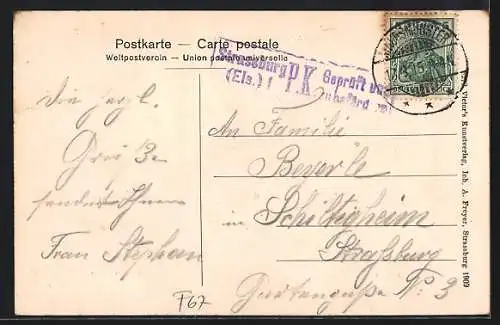 Postkarte – Carte postale
Weltpostverein – Union postale universelle
Strassburg P.K. Geprüft und
(Els.) 1 zu befördern
Die herzl.
Grüße
sendet Ihnen
Frau Stephan
An Familie
Beyerle
in Schiltigheim
Straßburg
Gartengasse No 3
F67
Victor's Kunstverlag, Inh. A. Freyer, Strassburg 1909